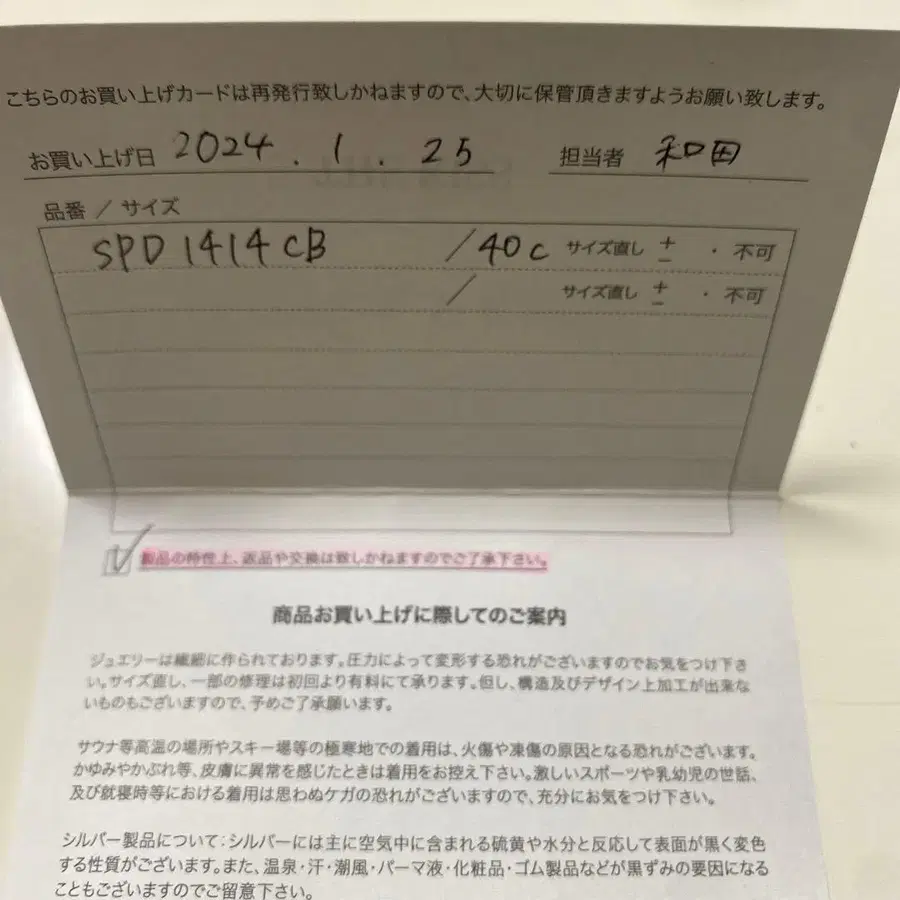 こちらのお買い上げカードは再発行致しかねますので、大切に保管頂きますようお願い致します。
お買い上げ日 2024 . 1 . 25 担当者 和田
品番 / サイズ
SPD1414CB / 40c サイズ直し + − ・ 不可
/ サイズ直し + − ・ 不可
製品の特性上、返品や交換は致しかねますのでご了承下さい。
商品お買い上げに際してのご案内
ジュエリーは繊細に作られております。圧力によって変形する恐れがございますのでお気をつけ下さ
い。サイズ直し、一部の修理は初回より有料にて承ります。但し、構造及びデザイン上加工が出来な
いものもございますので、予めご了承願います。
サウナ等高温の場所やスキー場等の極寒地での着用は、火傷や凍傷の原因となる恐れがございます。
かゆみやかぶれ等、皮膚に異常を感じたときは着用をお控え下さい。激しいスポーツや乳幼児の世話、
及び就寝時等における着用は思わぬケガの恐れがございますので、充分にお気をつけ下さい。
シルバー製品について：シルバーには主に空気中に含まれる硫黄や水分と反応して表面が黒く変色
する性質がございます。また、温泉・汗・潮風・パーマ液・化粧品・ゴム製品などが黒ずみの要因になる
こともございますのでご留意下さい。